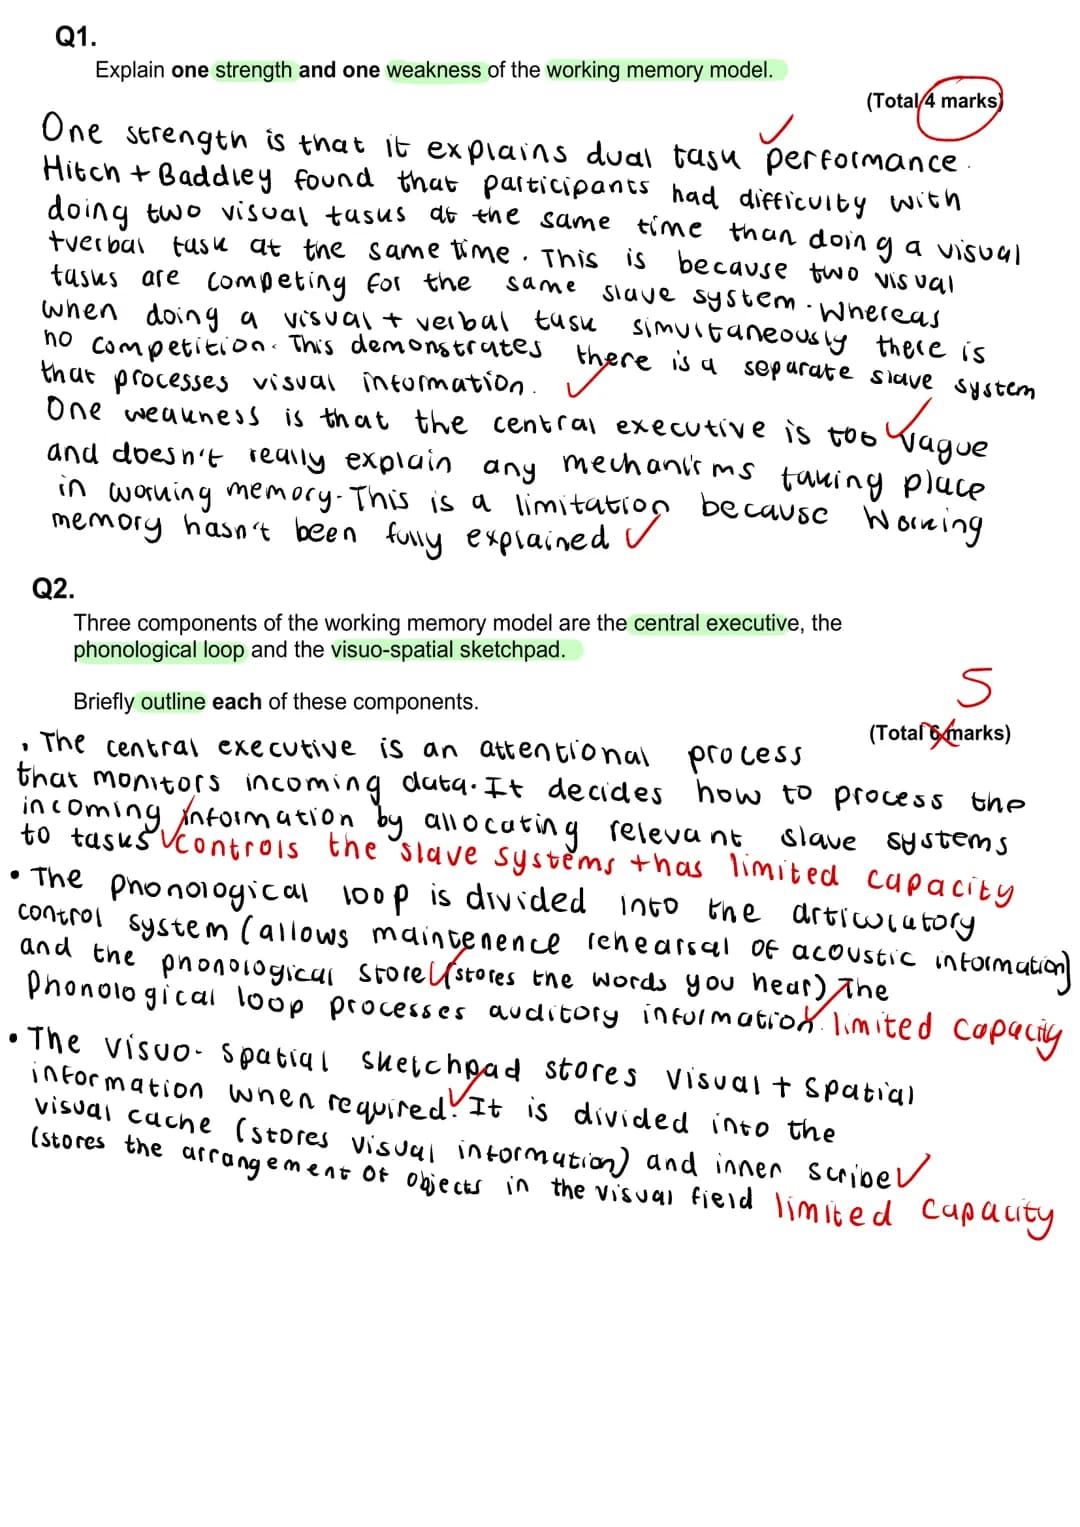 Q1.
Explain one strength and one weakness of the working memory model.
(Total 4 marks)
One strength is that it explains dual task performance.
Hitch + Baddley found that participants had difficulty with
doing two visual tasks at the same time than doing a visual
+verbal task at the same time. This is because two visual
tasks are competing for the same slave system. Whereas
when doing a visual + verbal task simultaneously there is
no competition. This demonstrates there is a separate slave system
that processes visual information.
One weakness is that the central executive is too vague
and doesn't really explain any mechanisms taking place
in working memory. This is a limitation because working
memory hasn't been fully explained
Q2.
Three components of the working memory model are the central executive, the
phonological loop and the visuo-spatial sketchpad.
Briefly outline each of these components.
5
(Total 6 marks)
• The central executive is an attentional process
that monitors incoming data. It decides how to process the
incoming information by allocating relevant slave systems
to tasks controls the slave systems + has limited capacity
• The phonological loop is divided into the articulatory
control system (allows maintenence rehearsal of acoustic information)
and the phonological store (stores the words you hear) The
Phonological loop processes auditory information. limited capacity
• The visuo-spatial sketchpad stores visual + spatial
information when required. It is divided into the
visual cache (stores visual information) and inner scribe
(stores the arrangement of objects in the visual field limited capacity